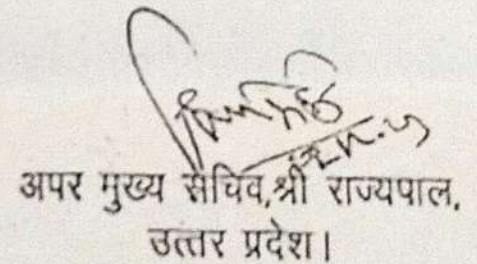 अपर मुख्य सचिव,श्री राज्यपाल,
उत्तर प्रदेश।